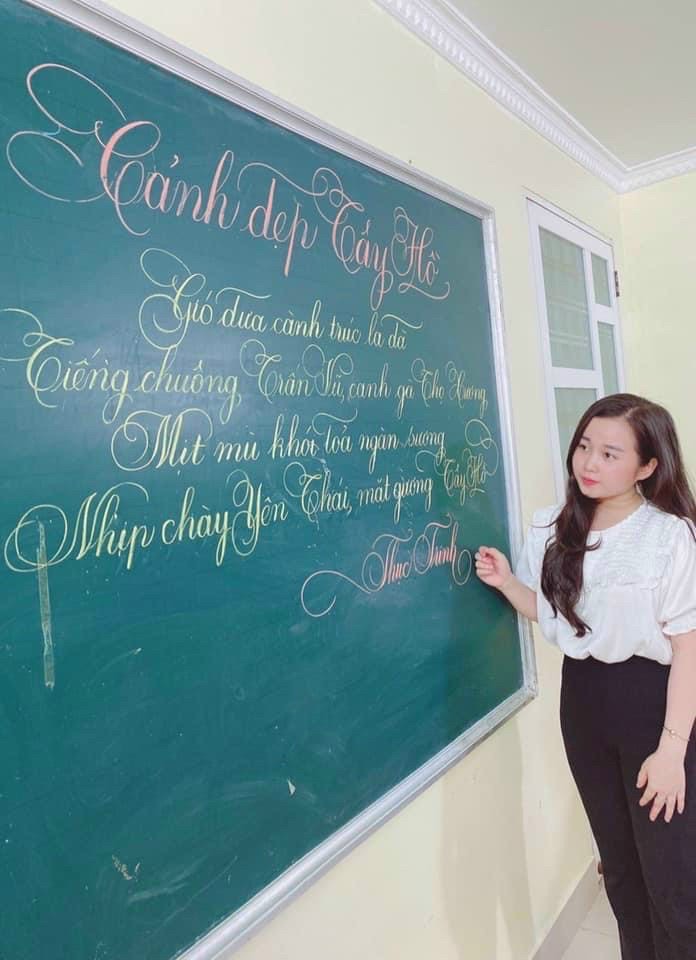 Cảnh đẹp Tây Hồ
Gió đưa cành trúc la đà
Tiếng chuông Trấn Vũ, canh gà Thọ Xương
Mịt mù khói toả ngàn sương
Nhịp chày Yên Thái, mặt gương Tây Hồ
Thục Trinh